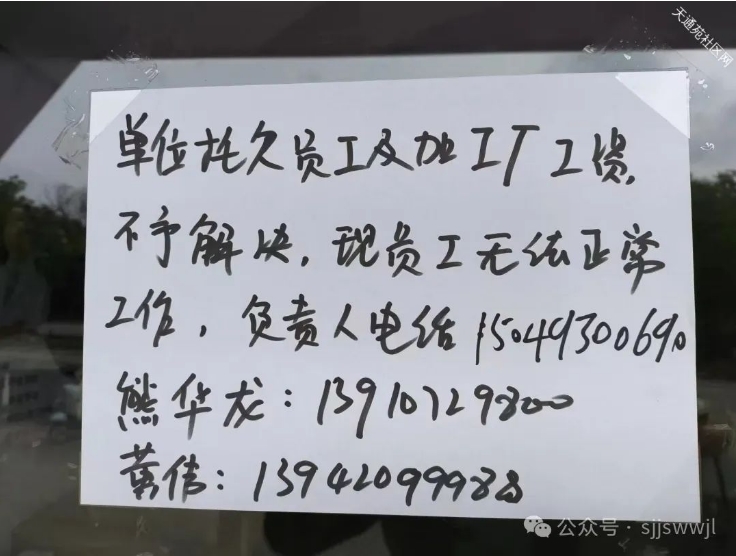 天通苑社区网
单位拖欠员工及加工厂工资,
不予解决,现员工无法正常
工作,负责人电话15049300690
熊华龙:13910729800
黄伟:13942099988
公众号·sjjswwjl